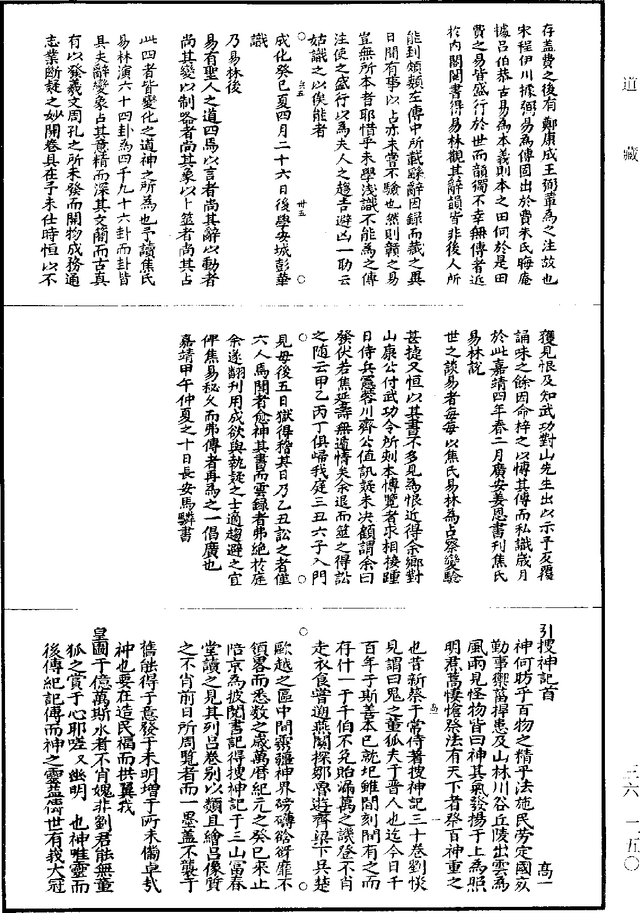 道藏
存蓋費之後有鄭康成王弼輩為之注故也
宋程伊川據弼易為傳固出於費朱氏晦庵
據呂伯恭古易為本義則本之田何於是田
費之易皆盛行於世而韻獨不幸無傳者近
於內閣閱書得易林觀其辭韻皆非後人所
能到頗類左傳中所載繇辭因錄而藏之異
日開有事以占亦未嘗不驗也然則贛之易
豈無所本音耶惜乎未學淺識不能為之傳
注使之盛行以為夫人之趨吉避凶一助云
姑識之以俟能者
成化癸巳夏四月二十六日後學安城彭華
識
乃易林後
易有聖人之道四焉以言者尚其辭以動者
尚其變以制器者尚其象以卜筮者尚其占
此四者皆變化之道神之所為也予讀焦氏
易林演六十四卦為四千九十六卦而卦皆
具夫辭變象占其意精而深其文簡而古真
有以發羲文周孔之所未發而開物成務通
志業斷疑之妙開卷具在予未仕時恒以不
獲見恨及知武功對山先生出以示予反覆
誦味之餘因命梓之以博其傳而私識歲月
於此嘉靖四年春二月廣安姜恩書刊焦氏
易林說
世之談易者每每以焦氏易林為占察變驗
甚捷又恒以其書不多見為恨近得余鄉對
山康公付武功令所刻本傳覽者求相接踵
日侍兵憲蓉川齊公值訊疑未決顧謂余曰
發伏若焦延壽無遁情矣余退而筮之得訟
之隨云甲乙丙丁俱歸我庭三丑六子入門
見母後五日獄得稽其日乃乙丑訟之者僅
六人焉聞者愈神其書而雲錄者弗絕於庭
余遂翻刊用成欲與執疑之士適趨避之宜
俾焦易秘久而弗傳者再為之一倡廣也
嘉靖甲午仲夏之十日長安馬驎書
引搜神記首 高一
神何昉乎百物之精乎法施民勞定國死
勤事禦菑捍患及山林川谷丘陵出雲為
風雨見怪物皆曰神其氣發揚于上為照
明焄蒿悽愴祭法有天下者祭百神重之
也昔新蔡于常侍著搜神記三十卷劉惔
見謂曰鬼之董狐夫于晉人也迄今日千
百年于斯善本已就圯雖間刻間有之而
存什一于千伯不免貽漏萬之譏登不肖
走衣食嘗遨燕關探鄒魯遊齊梁下吳楚
歐越之區中間霛疆神界磅礡皊衍靡不
領畧而悉数之歲萬曆紀元之癸巳來止
陪京為披閱書記得搜神記于三山富春
堂讀之見其列呂卷别以類且繪呂像質
之不肖前日所周覽者而一墨盖不襲于
舊能得于意發于未明增于所未備卓㢤
神也要在造民福而拱翼我
皇圖于億萬斯水者不肖媿非劉君能無董
狐之賞于心耶嗟又幽明 也神唯靈而
後傳紀記傳而神之靈益儔世有我大冠
三六—一五〇